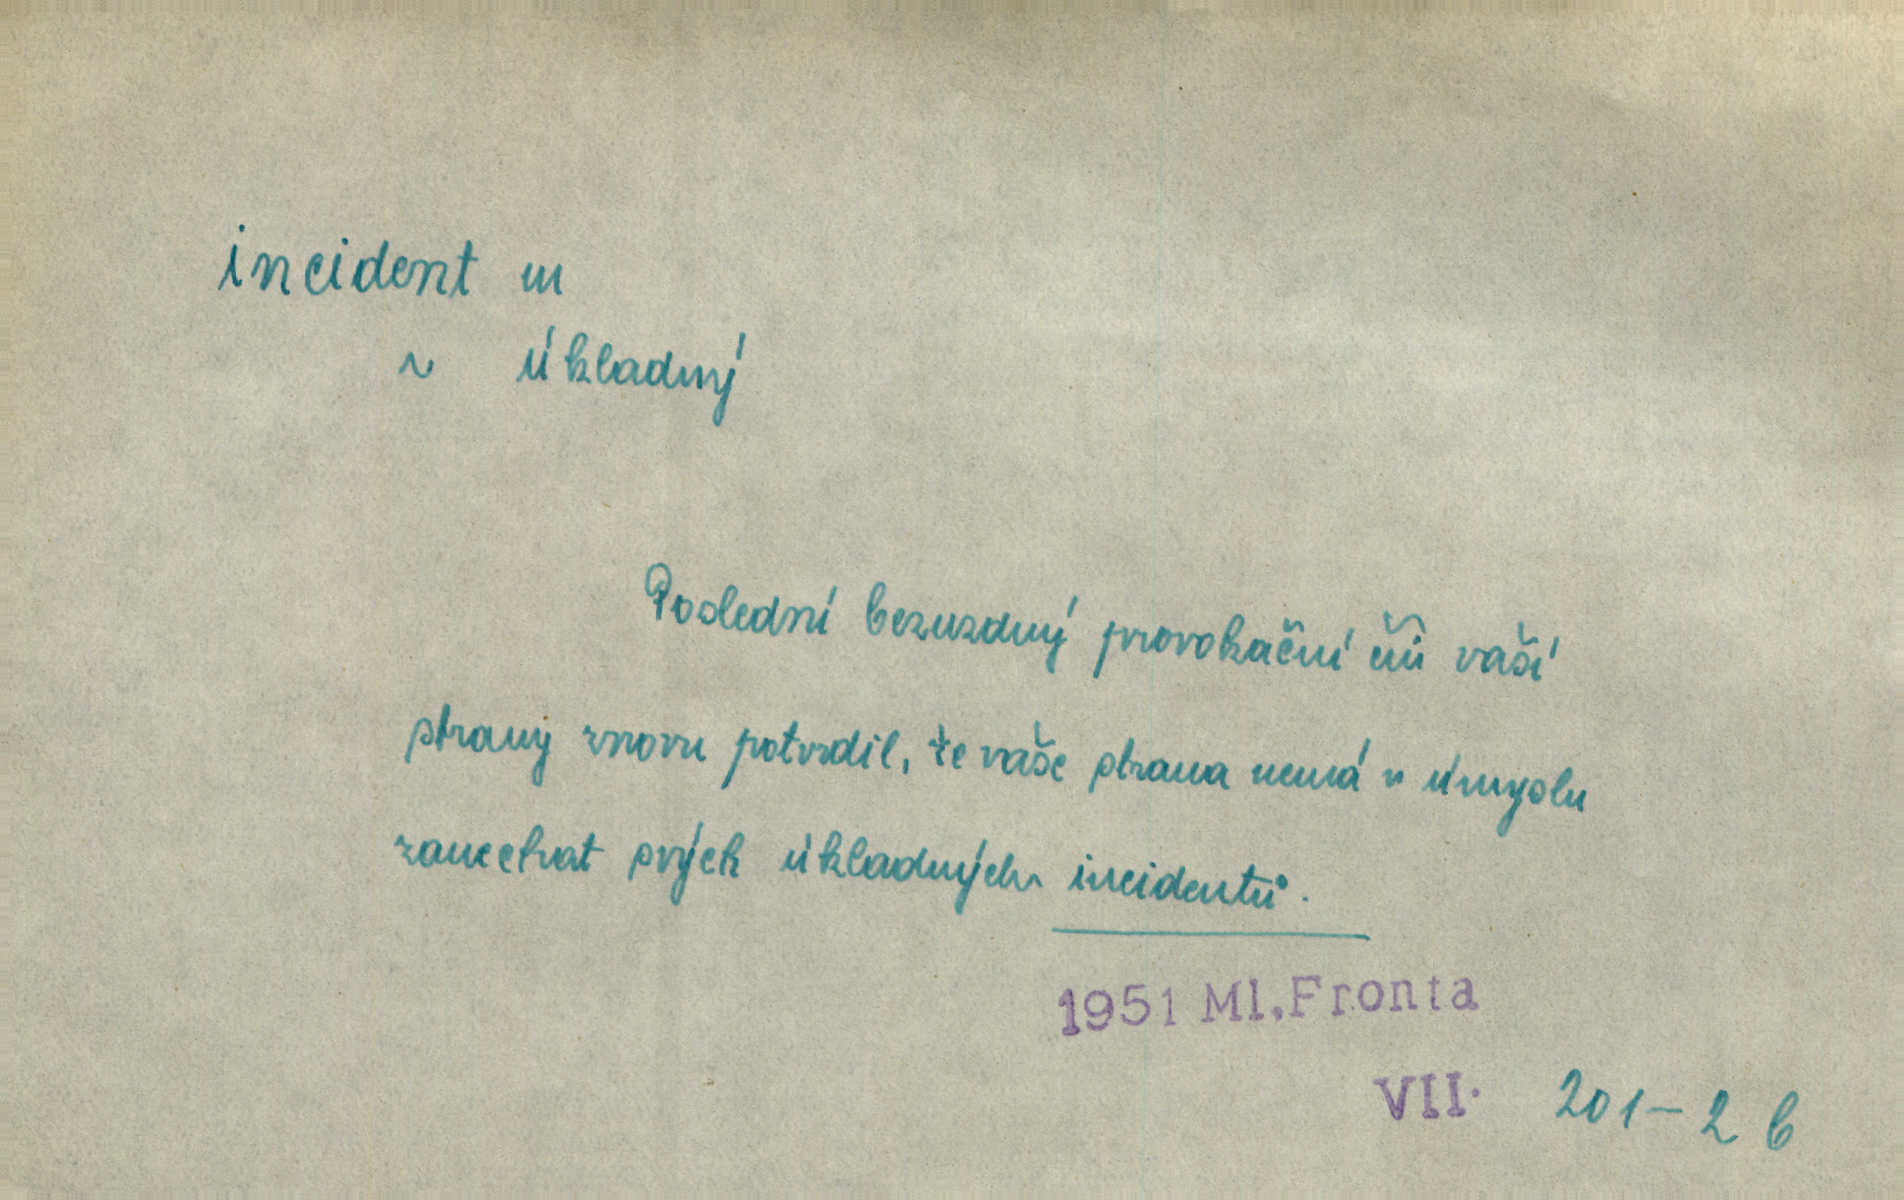 incident m
~ úkladný
Poslední bezuzdný provokační čin vaší
strany znovu potvrdil, že vaše strana nemá v úmyslu
zanechat svých úkladných incidentů.
1951 Ml.Fronta
VII. 201-2 b